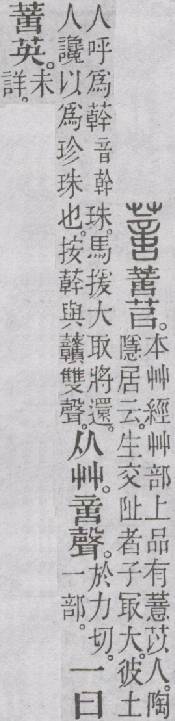 苢。本艸經艸部上品有薏苡人。陶
隱居云。生交阯者子冣大。彼土
人呼爲音幹珠。馬援大取將還。
人讒以爲珍珠也。按與贛雙聲。
从艸。聲。於力切。
一部。
一曰
英。未
詳。